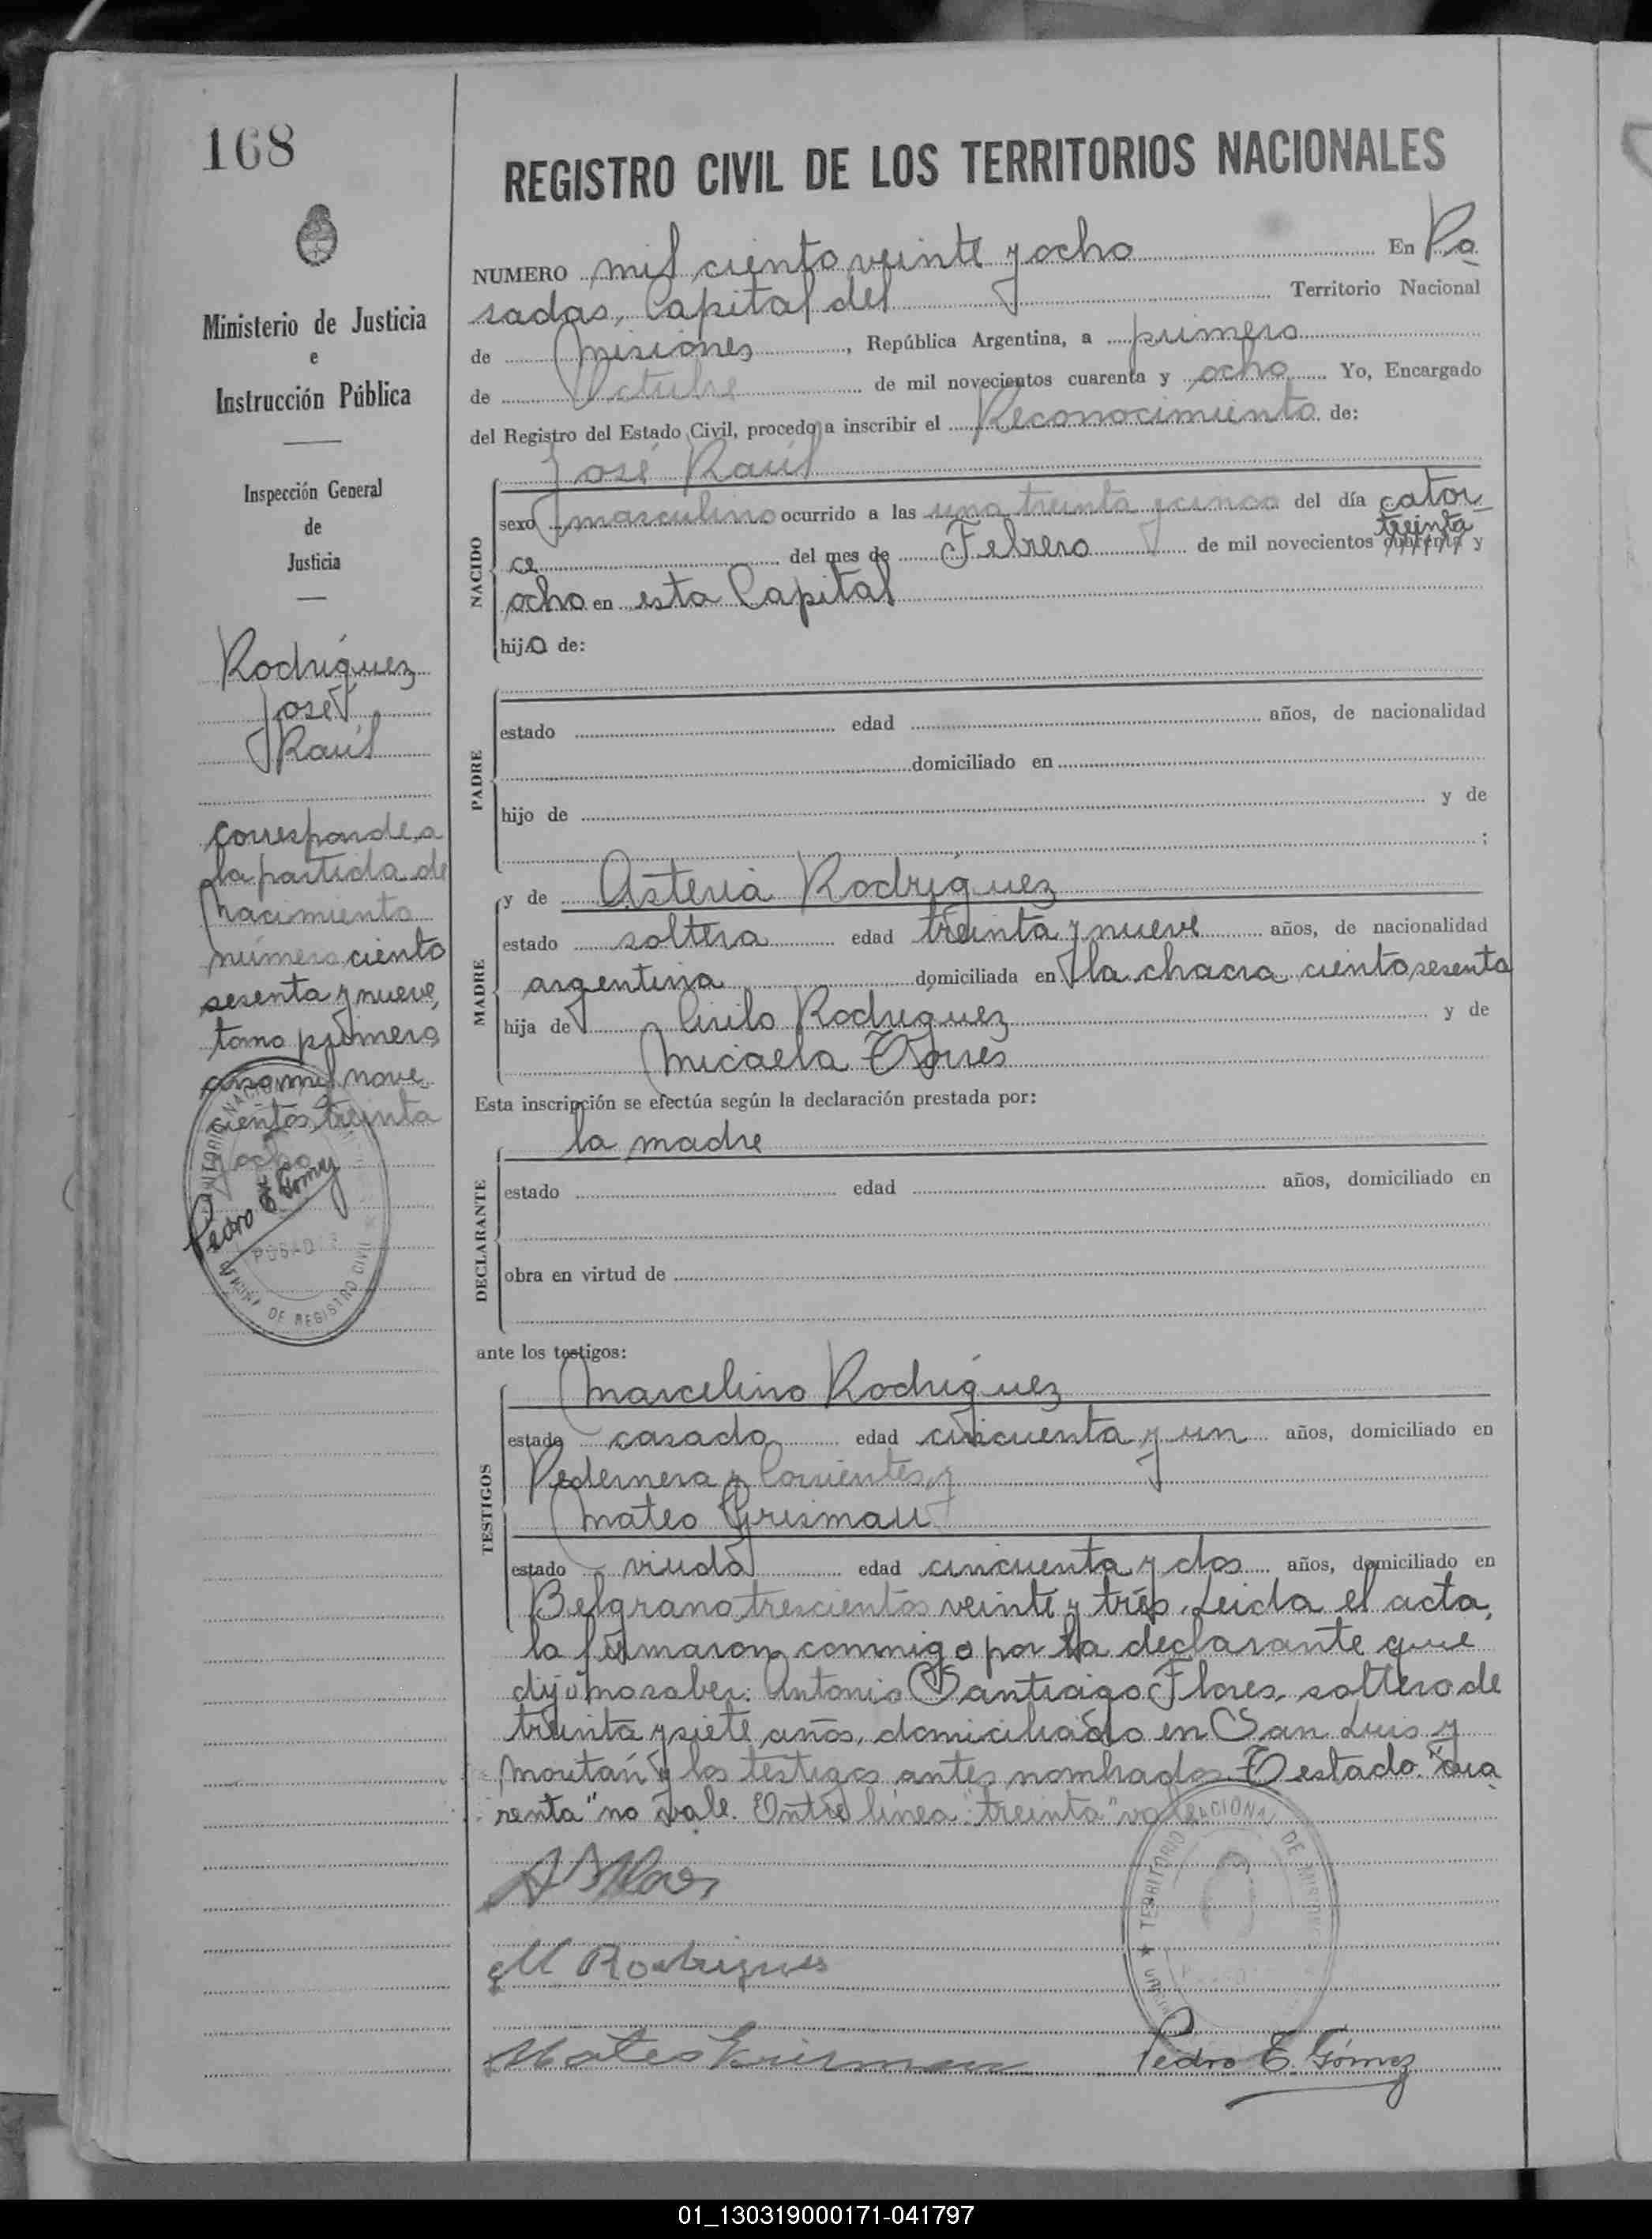 168
REGISTRO CIVIL DE LOS TERRITORIOS NACIONALES
NUMERO mil ciento veinte y ocho En Po
sadas, Capital del Territorio Nacional
de Misiones, República Argentina, a primero
de Octubre de mil novecientos cuarenta y ocho Yo, Encargado
del Registro del Estado Civil, procedo a inscribir el Reconocimiento de:
José Raúl
NACIDO
sexo masculino ocurrido a las una treinta y cinco del día cator
treinta
ce del mes de Febrero de mil novecientos cuarenta y
ocho en esta Capital
hijo de:
PADRE
estado edad años, de nacionalidad
domiciliado en
hijo de y de
;
MADRE
y de Asteria Rodríguez
estado soltera edad treinta y nueve años, de nacionalidad
argentina domiciliada en la chacra ciento sesenta
hija de Cirilo Rodríguez y de
Micaela Torres
Esta inscripción se efectúa según la declaración prestada por:
la madre
DECLARANTE
estado edad años, domiciliado en
obra en virtud de
ante los testigos:
TESTIGOS
Marcelino Rodríguez
estado casado edad cincuenta y un años, domiciliado en
Pedernera y Corrientes y
Mateo Grismau
estado viudo edad cincuenta y dos años, domiciliado en
Belgrano trescientos veinte y trés. Leida el acta,
la firmaron conmigo por la declarante que
dijo no saber: Antonio Santiago Flores, soltero de
treinta y siete años, domiciliado en San Luis y
Moután y los testigos antes nombrados. Testado "cua
renta" no vale. Entre línea "treinta" vale
M Rodrigues
Pedro E. Gómez
Ministerio de Justicia
e
Instrucción Pública
Inspección General
de
Justicia
Rodríguez
José
Raúl
Corresponde a
la partida de
nacimiento
número ciento
sesenta y nueve,
tomo primero
año mil nove
cientos treinta
y ocho
Pedro E. Gómez
POSADAS
OFICINA DE REGISTRO CIVIL
TERRITORIO NACIONAL DE MISIONES
01_130319000171-041797